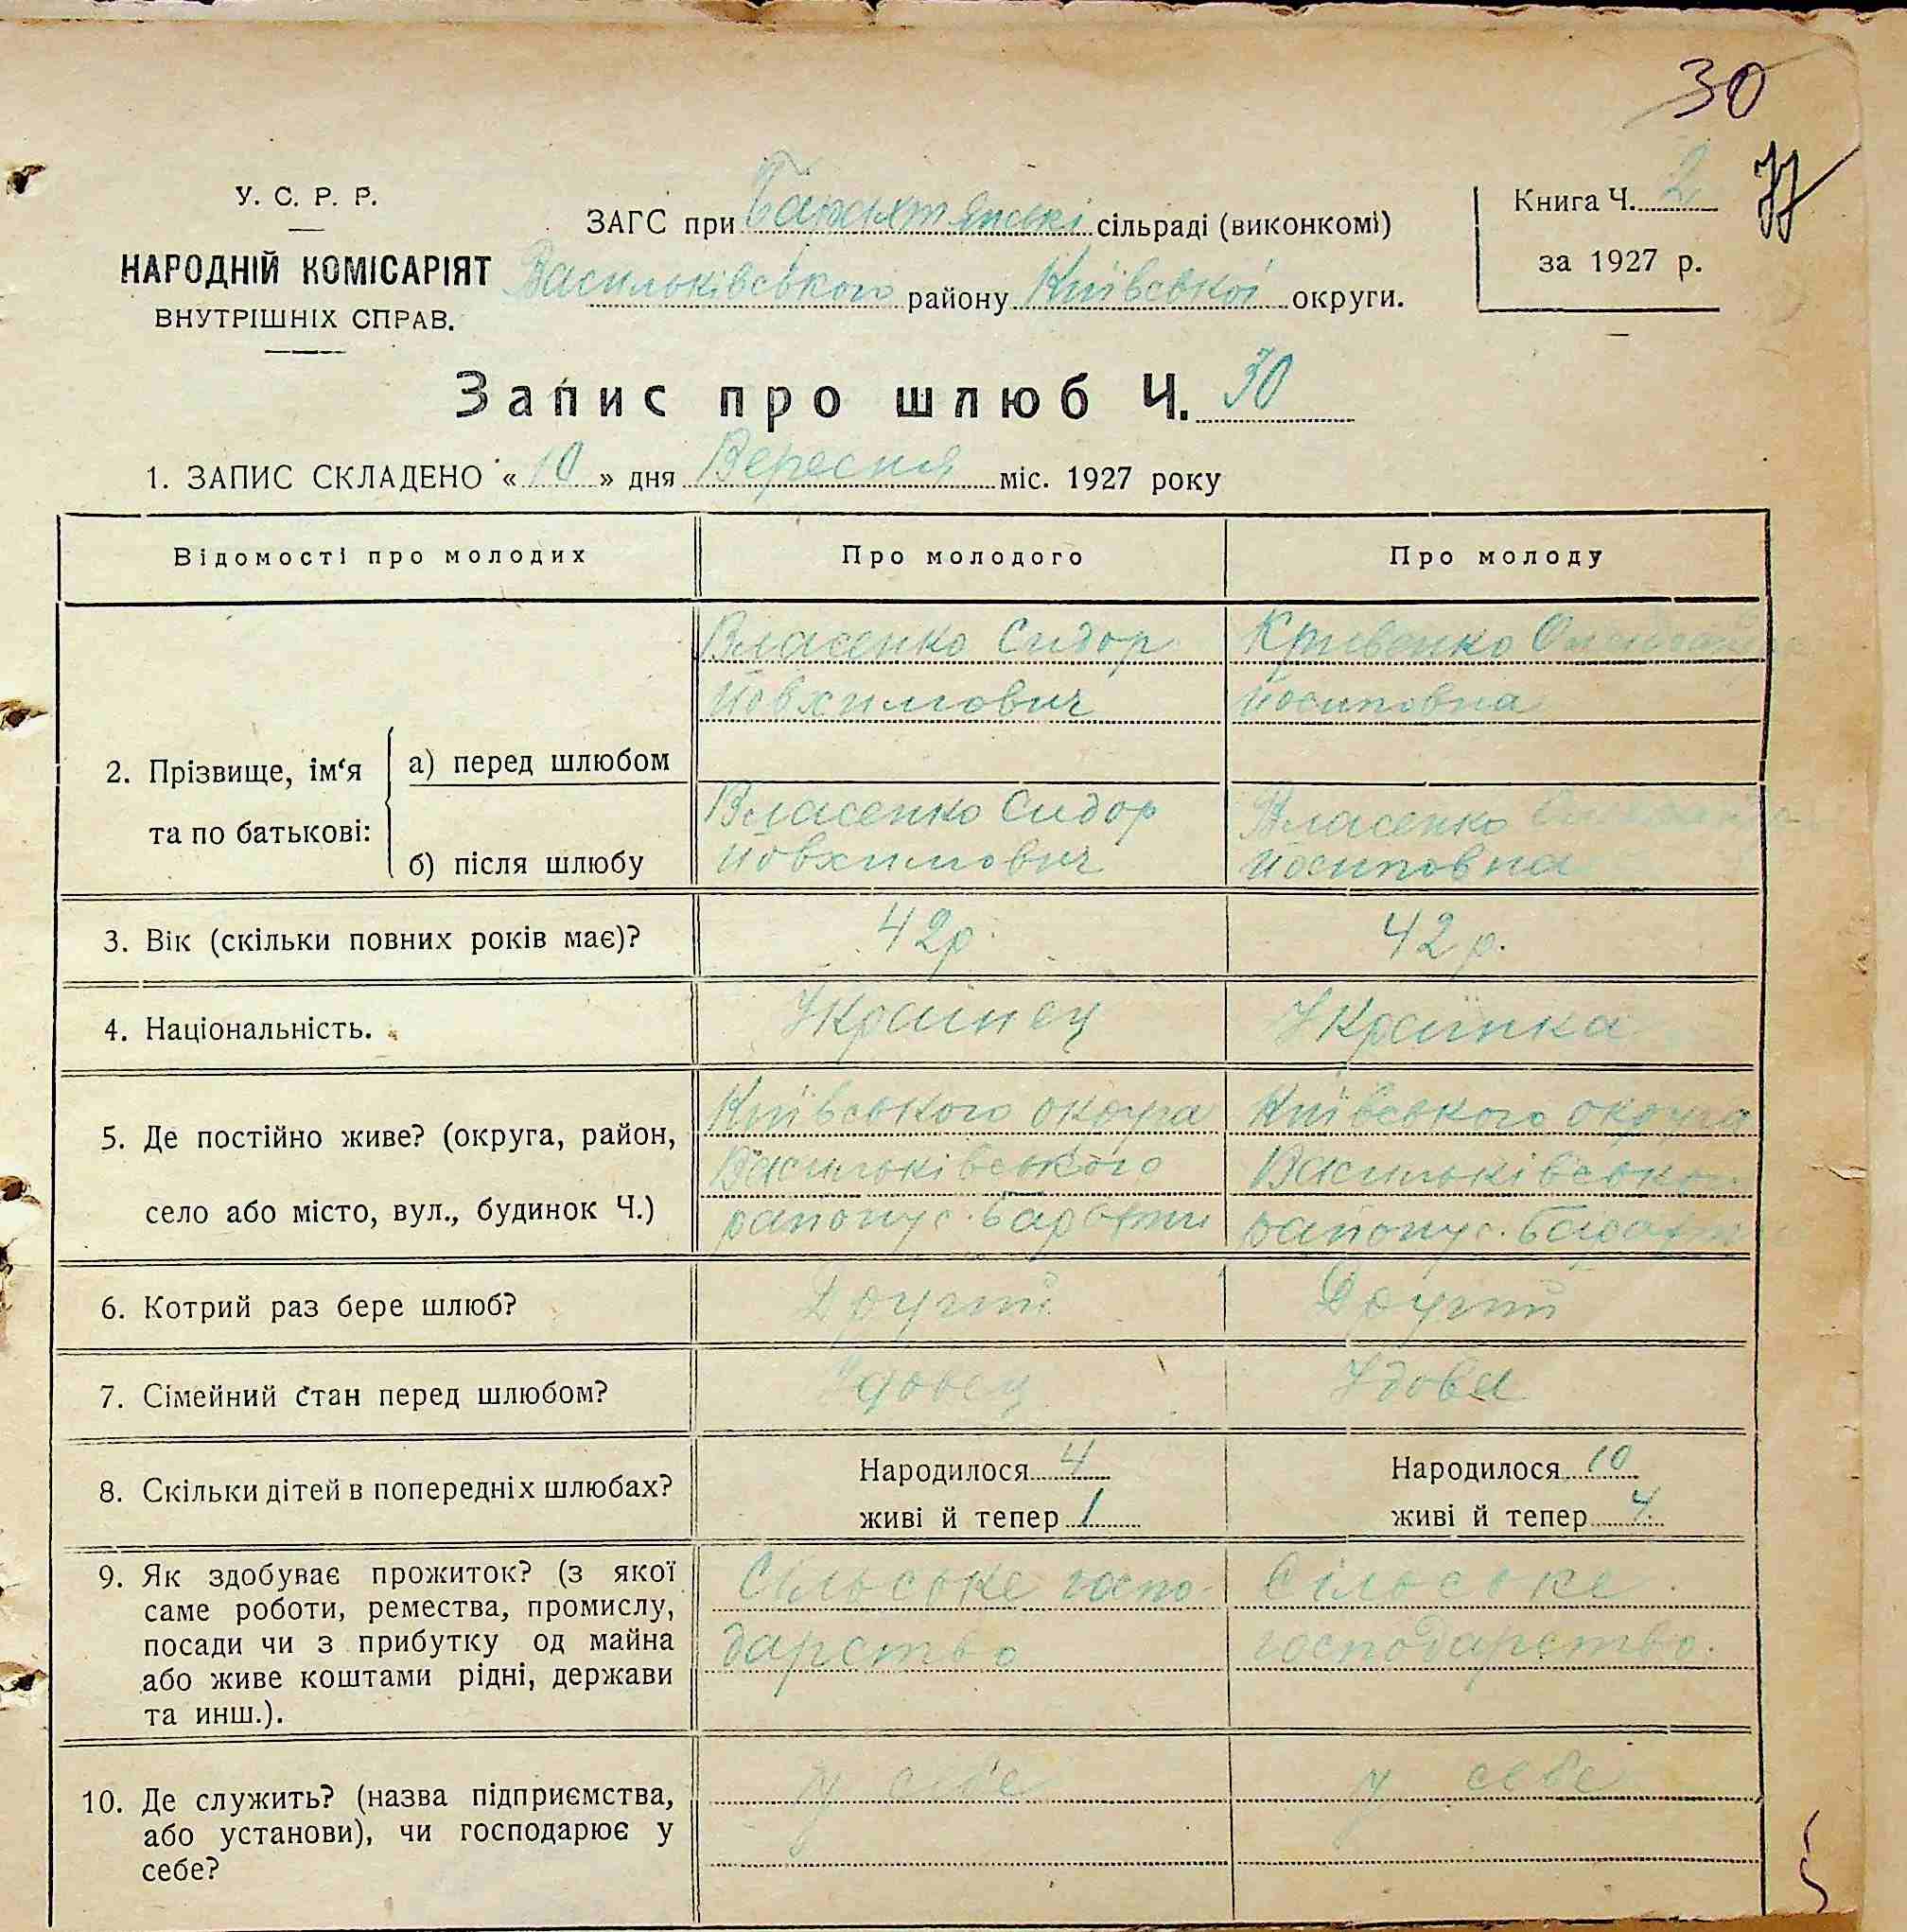 30
У. С. Р. Р.
НАРОДНІЙ КОМІСАРІЯТ
ВНУТРІШНІХ СПРАВ.
ЗАГС при Барахтянські сільраді (виконкомі)
Васильківського району Київської округи.
Книга Ч. 2
за 1927 р.
Запис про шлюб Ч. 30
1. ЗАПИС СКЛАДЕНО «10» дня Вересня міс. 1927 року
Відомості про молодих Про молодого Про молоду
2. Прізвище, ім‘я та по батькові:
а) перед шлюбом
Власенко Сидор
Йовхимович
Кривенко
Йосиповна
б) після шлюбу
Власенко Сидор
Йовхимович
Власенко
Йосиповна
3. Вік (скільки повних років має)? 42 р. 42 р.
4. Національність. Українец Українка
5. Де постійно живе? (округа, район,
село або місто, вул., будинок Ч.)
Київського округа
Васильківського
району с. Барахти
Київського округа
Васильківського
району с. Барахти
6. Котрий раз бере шлюб? Другий Другий
7. Сімейний стан перед шлюбом? Удовец Удова
8. Скільки дітей в попередніх шлюбах?
Народилося 4
живі й тепер 1
Народилося 10
живі й тепер 4
9. Як здобуває прожиток? (з якої
саме роботи, ремества, промислу,
посади чи з прибутку од майна
або живе коштами рідні, держави
та инш.).
Сільське госпо-
дарство
Сільське
господарство.
10. Де служить? (назва підприємства,
або установи), чи господарює у
себе?
у себе
у себе